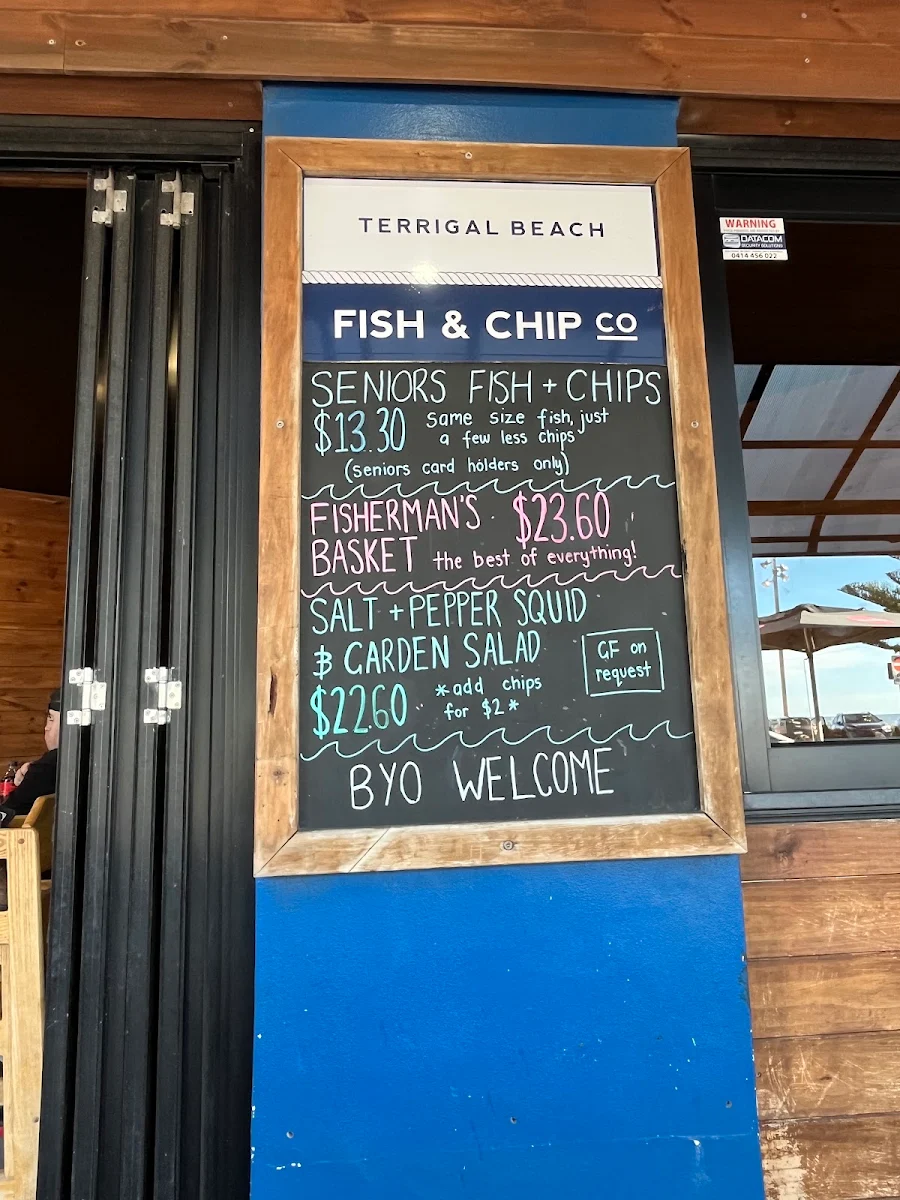 TERRIGAL BEACH
FISH & CHIP CO
SENIORS FISH + CHIPS
$13.30 Same size fish, just
a few less chips
(seniors card holders only)
FISHERMAN'S $23.60
BASKET the best of everything!
SALT + PEPPER SQUID
& GARDEN SALAD
GF on
request
$22.60 *add chips
for $2*
BYO WELCOME
WARNING
DATACOM
SECURITY SOLUTIONS
0414 456 022